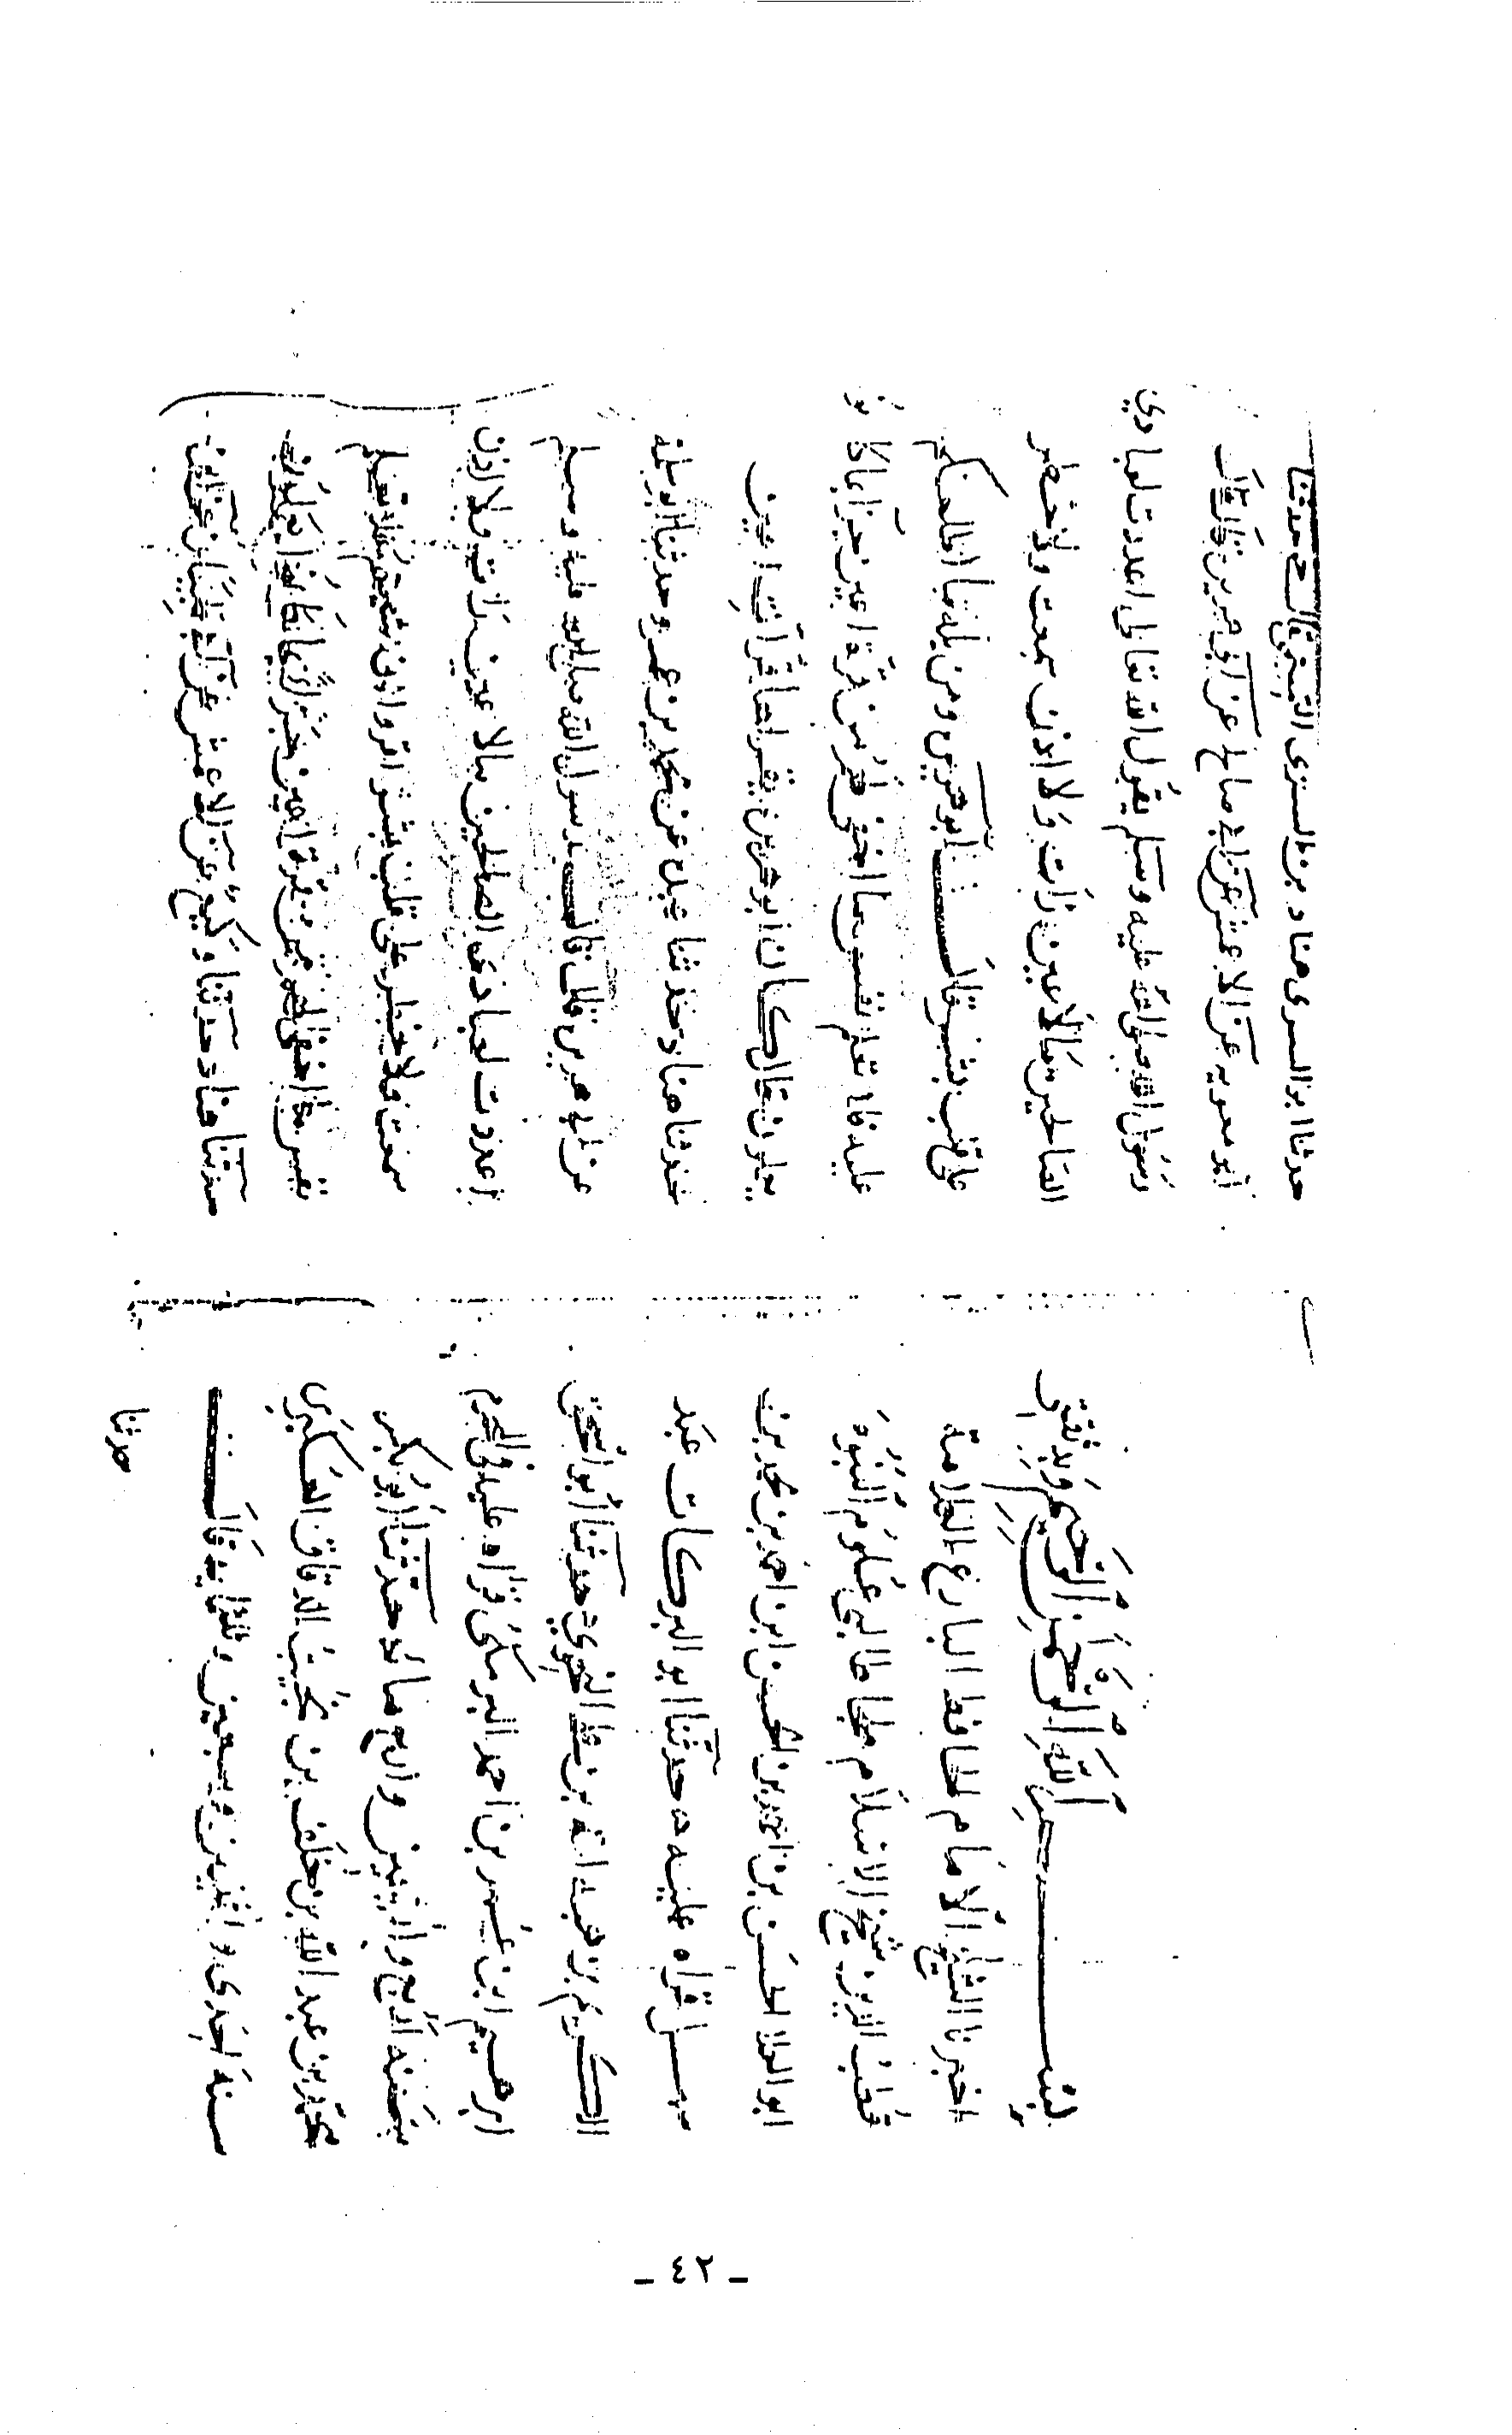 بسم الله الرحمن الرحيم وبه ثقتي
اخبرنا الشيخ الامام الحافظ البارع العلامة
قطب الدين شيخ الاسلام محيا طالبي علوم النبوه
ابو العلا الحسن بن احمد بن الحسن ابن احمد بن محمد بن
سهل قراه عليه حدثنا ابو البركات عبد
الكريم بن هبة الله بن النحوي حدثنا ابو اسحق
ابرهيم ابن عمر بن احمد البرمكي قراه عليه في المحرم
سنه اربع واربعين واربع مائه حدثنا ابو بكر
محمد بن عبد الله بن خلف بن بخيت الدقاق العكبري
سنه احدى وسبعين وثلثمايه قال
حدثنا
حدثنا ابو السرى هناد بن السرى التميمي حدثنا
ابو معويه عن الاعمش عن ابي صالح عن ابي هريره قال قال
رسول الله صلى الله عليه وسلم يقول الله تعالى اعددت لعبادي
الصالحين مالا عين رات ولا اذن سمعت ولا خطر
على قلب بشر قال ابو هريره ومن بله ما اطلعكم
عليه فلا تعلم نفس ما اخفى لهم من قرة اعين جزآ بما كانو
يعملون قال كان ابو هريره يقراها قرات اعين
حدثنا هناد حدثنا عن محمد بن عمرو حدثنا ابو سلمة
عن ابي هريره قال قال رسول الله صلى الله عليه وسلم
اعددت لعبادى الصالحين مالا عين رات ولا اذن
سمعت ولا خطر على قلب بشر اقروا ان شيتم فلا تعلم
نفس ما اخفى لهم من قرة اعين جزاء بما كانوا يعملون
حدثنا هناد حدثنا وكيع عن الاعمش عن ابي ظبيان عن ابن
- ٤٢ -